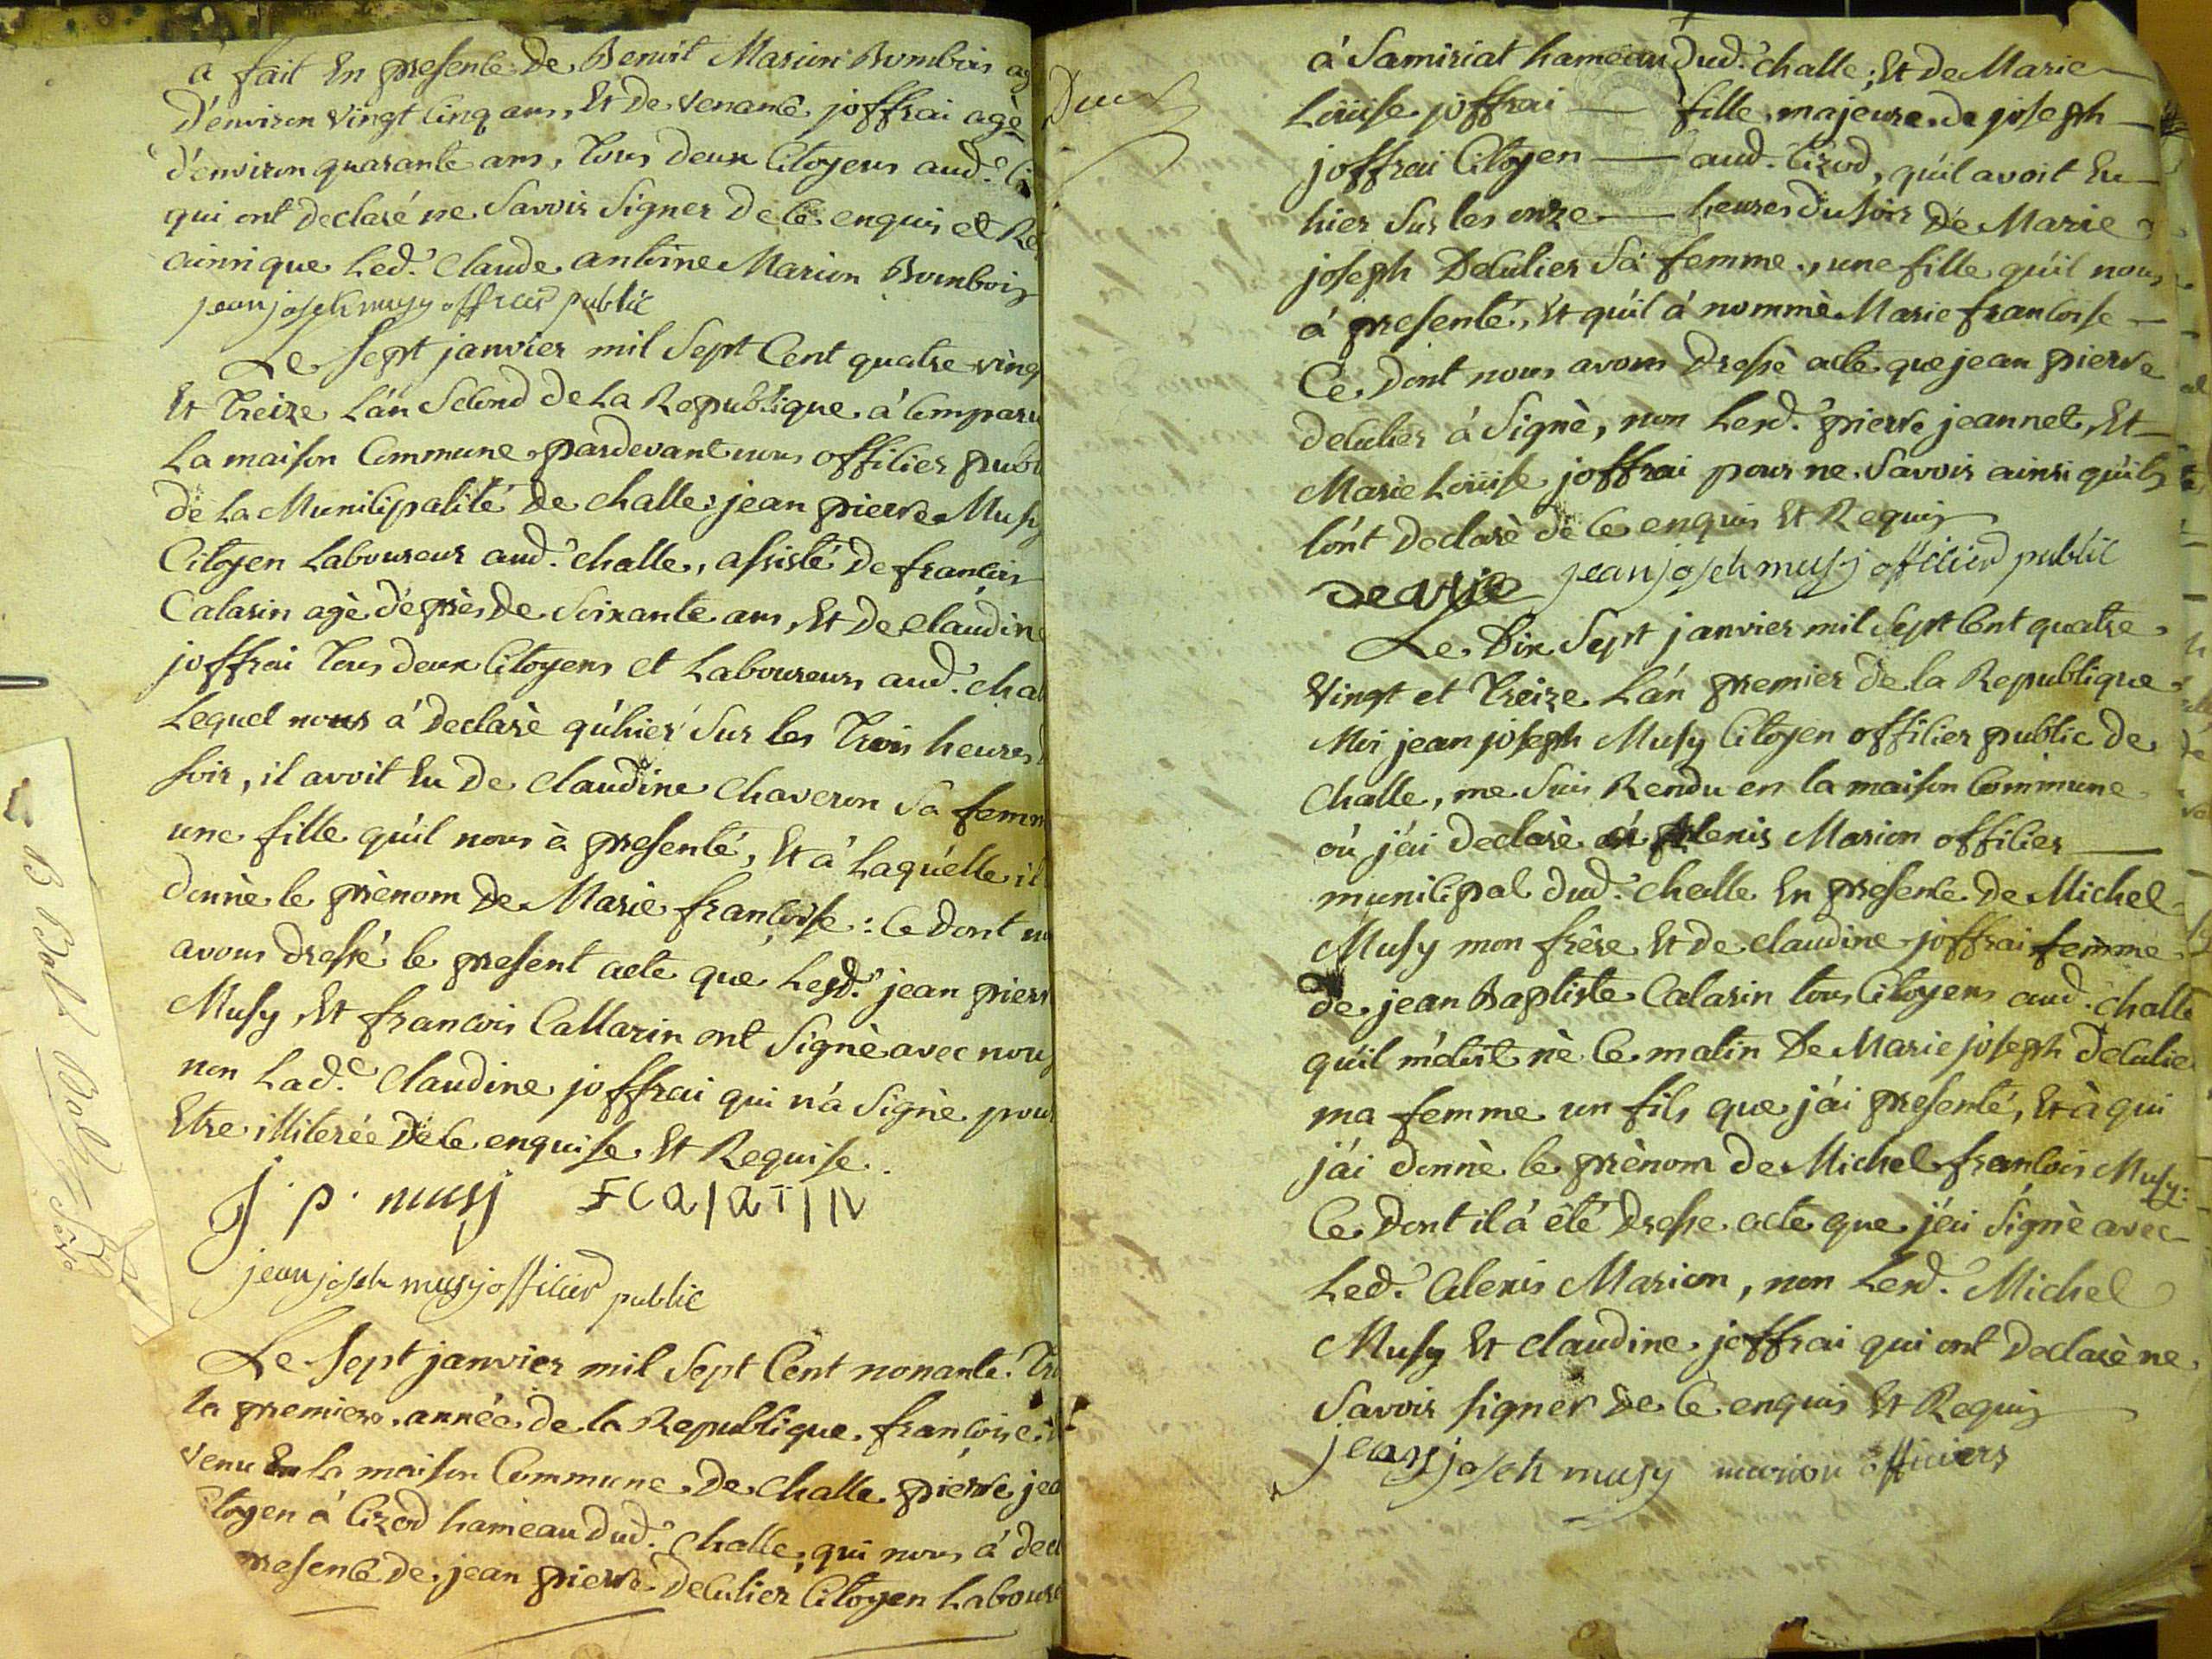 à fait En presence de Benoit Marion Bombois ag
d'environ vingt Cinq ans, Et de venance joffrai agè
d'environ quarante ans, Tous deux Citoyens aud.
qui ont declaré ne Savoir Signer de ce enquis et Re
ainsi que Led.t Claude antoine Marion Bombois
jean joseh musy officier public
Le Sept janvier mil Sept Cent quatre ving
Et Treize L'an Second de La Republique à Comparu
La maison Commune pardevant nous officier publ
de La Municipalité de challe: jean pierre Musy
Citoyen Laboureur aud.t challe, assisté de francois
Calarin agè de près de Soixante ans, Et de Claudine
joffrai Tous deux Citoyens et Laboureurs aud.t chal
Lequel nous a declarè qu'hier Sur les Trois heures
soir, il avoit Eu de Claudine Chaveron Sa femm
une fille qu'il nous à presenté, Et à Laquelle il
donnè le prènom de Marie francoise: Ce dont n
avons dressé le present acte que Lesd.t jean pierr
Musy, Et francois Callarin ont Signè avec nous
non Lad.e Claudine joffrai qui n'a Signè pour
Etre illiterée de ce enquise Et Requise.
j. p. musy FCalatiN
jean joseh musy officier public
Le Sept janvier mil Sept Cent nonante. Tr
la premiere année de la Republique francoise
venu En la maison Commune de Challe pierre jea
toyen à Cizod hameau dud.t Challe, qui nous à decl
presence de jean pierre deculier Citoyen Laboure
à Samiriat hameau dud.t challe; Et de Marie
Loüise joffrai — fille majeure de joseph —
joffrai Citoyen — aud. Cizod, qu'il avoit Eu —
hier Sur les onze — heures du soir de Marie
joseph Deculier Sa femme, une fille qu'il nous
à presenté, Et qu'il à nommè Marie francoise —
Ce dont nous avons dressè acte que jean pierre
deculier à Signè, non Lesd.t pierre jeannet, Et —
Marie Loüise joffrai pour ne Savoir ainsi qu'ils
l'ont declarè de ce enquis Et Requis
jean joseh musy officier public
Le Dix Sept janvier mil Sept Cent quatre
Vingt et Treize L'an premier de la Republique
Moi jean joseph Musy Citoyen officier public de
Challe, me Suis Rendu en la maison Commune
où j'ai declarè à alexis Marion officier —
municipal dud.t challe En presence de Michel
Musy mon frère Et de claudine joffrai femme
de jean Baptiste Calarin tous Citoyens aud. challe
qu'il m'etoit nè ce matin de Marie joseph deculie
ma femme un fils que j'ai presenté, Et à qui
j'ai donnè le prènom de Michel francois Musy:
Ce dont il à été dressé acte que j'ai Signè avec
Led.t Alexis Marion, non Lesd.t Michel
Musy Et claudine joffrai qui ont declarè ne
Savoir signer de ce enquis Et Requis
jean joseh musy marion officiers